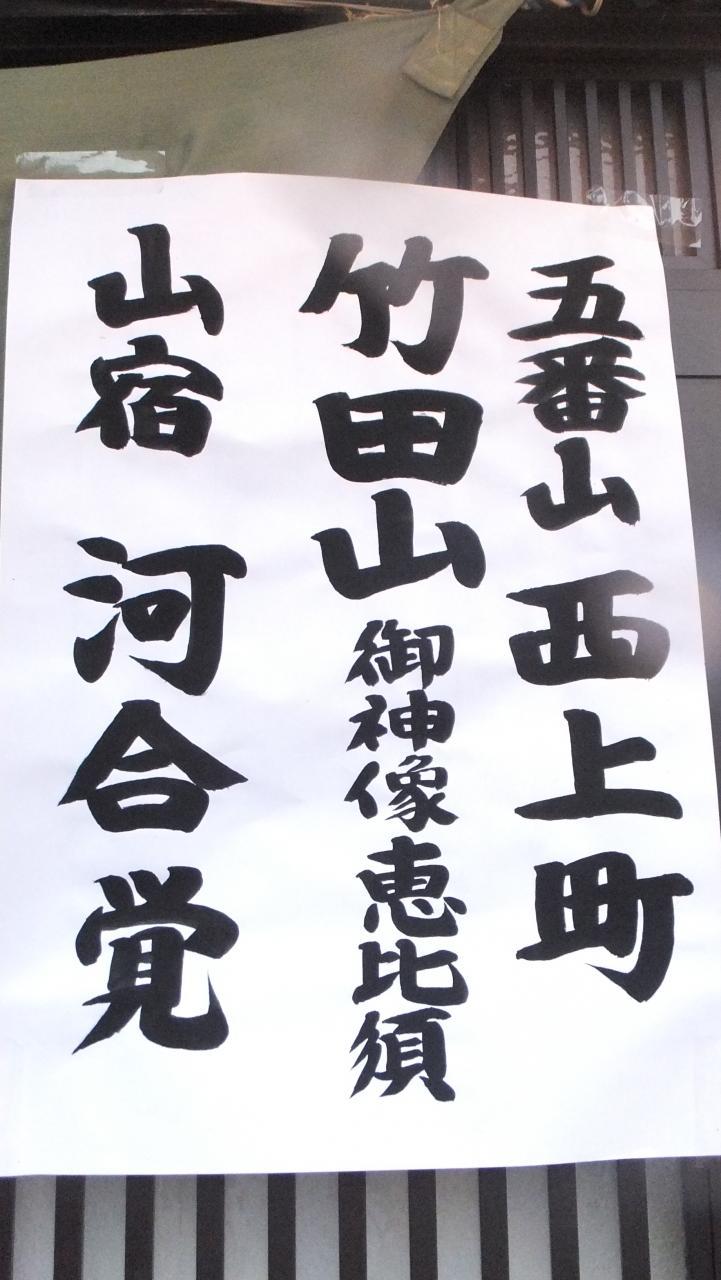 五番山 西上町
竹田山 御神像恵比須
山宿 河合覚